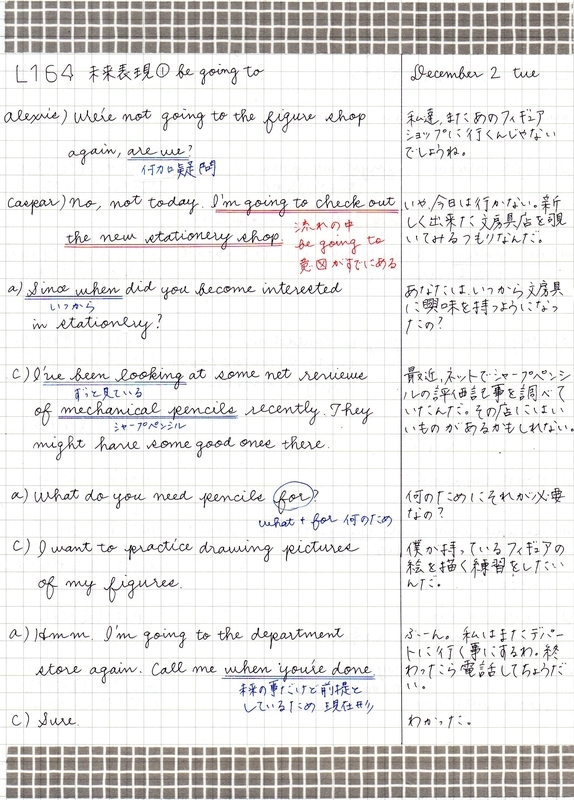 L164 未来表現① be going to
December 2 tue
Alexis) We're not going to the figure shop
again, are we?
付加疑問
私達、またあのフィギュア
ショップに行くんじゃない
でしょうね。
Caspar) No, not today. I'm going to check out
the new stationery shop.
流れの中
be going to
意図がすでにある
いや、今日は行かない。新
しく出来た文房具店を覗
いてみるつもりなんだ。
a) Since when did you become interested
いつから
in stationery?
あなたは、いつから文房具
に興味を持つようになっ
たの?
C) I've been looking at some net reviews
ずっと見ている
of mechanical pencils recently. They
シャープペンシル
might have some good ones there.
最近、ネットでシャープペンシ
ルの評価記事を調べて
いたんだ。その店にはい
いものがあるかもしれない。
a) What do you need pencils for?
what + for 何のため
何のためにそれが必要
なの?
C) I want to practice drawing pictures
of my figures.
僕が持っているフィギュアの
絵を描く練習をしたい
んだ。
a) Hmm. I'm going to the department
store again. Call me when you're done.
未来の事だけど前提と
しているため 現在形
ふーん。私はまたデパー
トに行く事にするわ。終
わったら電話してちょうだ
い。
C) Sure.
わかった。